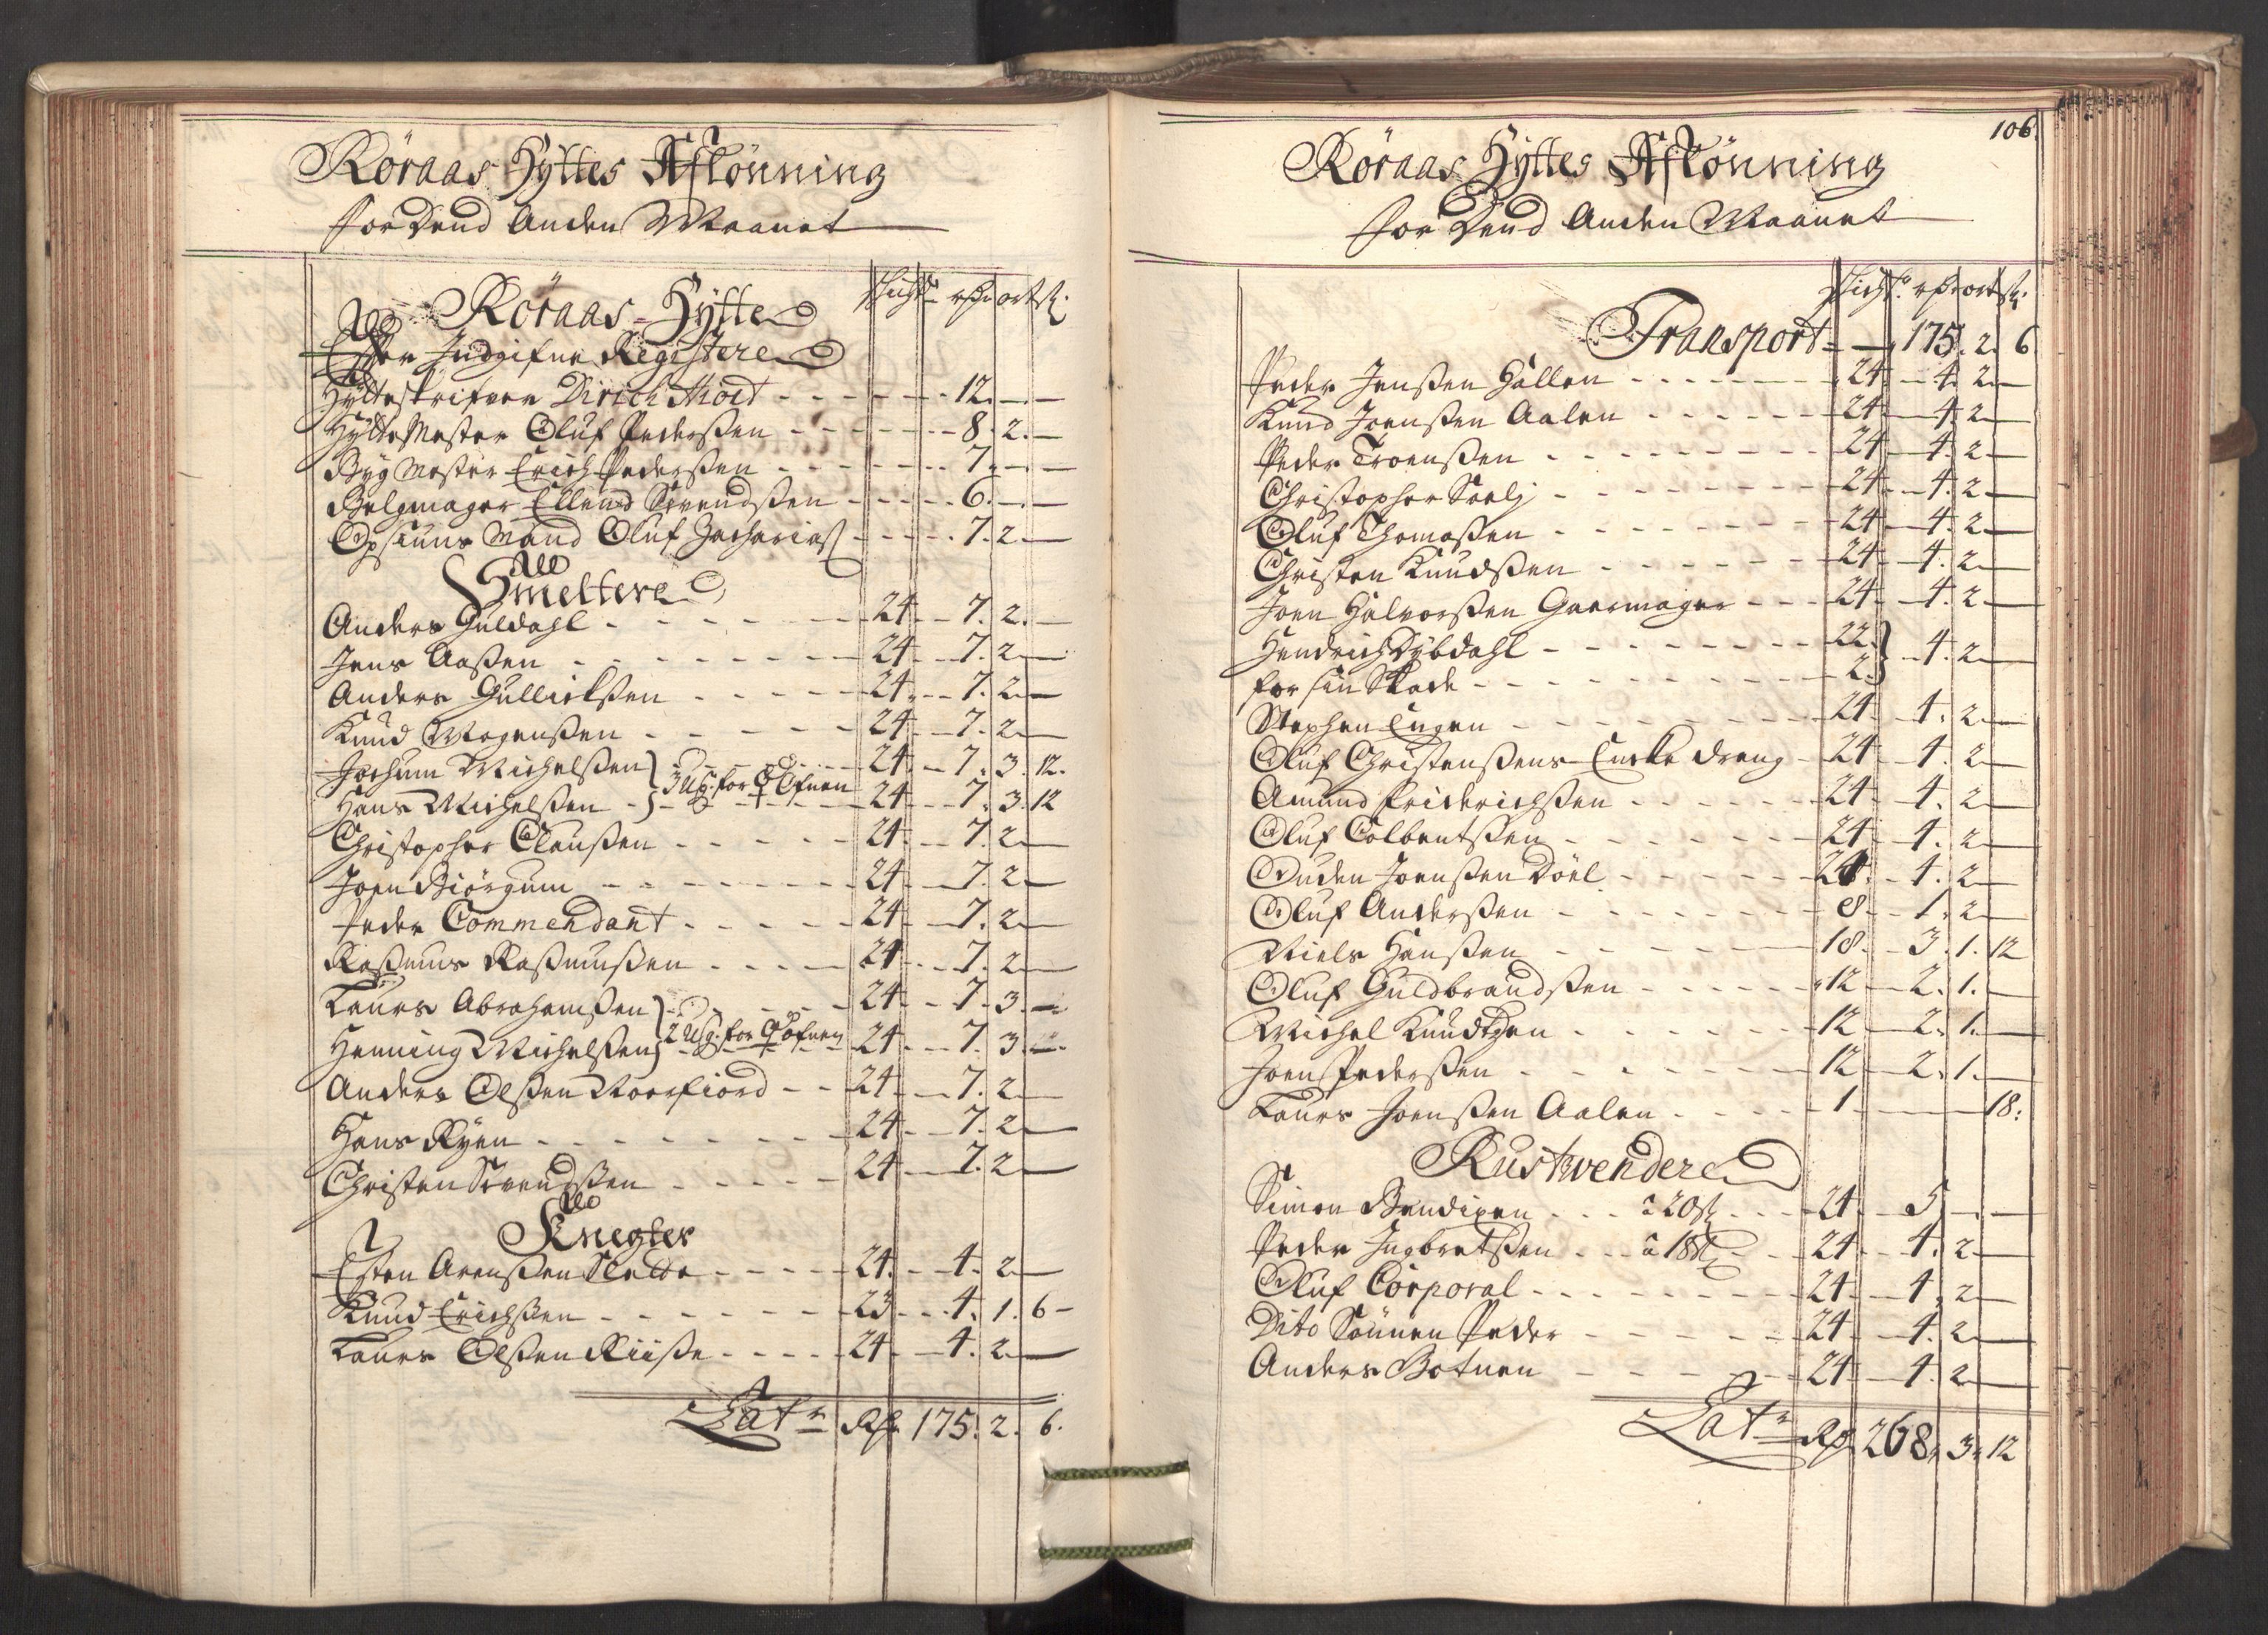 Røraas Hyttes Aflønning
for Dend Anden Maanet
Røraas Hytte
Efter Indgifne Registere
rdr ort sk.
Hytteskrifver Dirich Moet - - - 12. — —
HytteMester Oluf Pederssen - - - 8. 2. —
Bygmester Erich Pederssen - - - 7. — —
Belgmager Ellend Svendssen - - - 6. — —
Opsiuns Mand Oluf Zachariass - - - 7. 2. —
Smeltere
Anders Guldahl - - - 24 - 7. 2. —
Jens Aassen - - - 24 - 7. 2 —
Anders Gullickssen - - - 24 - 7. 2 —
Knud Mogenssen - - - 24 - 7. 2 —
Jochum Michelssen } - - - 24 - 7. 3. 12.
3 Ug. for ♀ Ofnen
Hans Michelssen } - - - 24 - 7. 3. 12
Christopher Claussen - - - 24 - 7. 2 —
Joen Biørgum - - - 24 - 7. 2 —
Peder Commendant - - - 24 - 7. 2 —
Rasmus Rasmussen - - - 24 - 7. 2 —
Laurs Abrahamssen } - - - 24 - 7. 3. —
2 Ug. for ♀ Ofnen
Henning Michelssen } - - - 24 - 7. 3. —
Anders Olssen Noerfiord - - 24 - 7. 2 —
Hans Ryen - - - 24 - 7. 2 —
Christen Svendssen - - - 24 - 7. 2 —
Knegter
Esten Arenssen Slette - - - 24 - 4. 2 —
Knud Erichssen - - - 23 - 4. 1. 6 —
Laurs Olssen Riisse - - - 24 - 4. 2 —
Latr Rdr 175. 2. 6.
106.
Røraas Hyttes Afløning
for Dend Anden Maanet
rdr ort sk.
Transport - — 175. 2. 6
Peder Jenssen Hallen - - - 24 - 4. 2 —
Knud Joenssen Aalen - - - 24 - 4. 2 —
Peder Troenssen - - - 24 - 4. 2 —
Christopher Soelj - - - 24 - 4. 2 —
Oluf Thomassen - - - 24 - 4. 2 —
Christen Knudssen - - - 24 - 4. 2 —
Joen Halvorssen Gaermager - - - 24 - 4. 2 —
Hendrich Dybdahl - - - 22 } - 4. 2 —
for sin Skade - - - 2 }
Stephen Engen - - - 24 - 4. 2 —
Oluf Christenssens Encke dreng - 24 - 4. 2 —
Amund Friderichssen - - - 24 - 4. 2 —
Oluf Colbentssen - - - 24 - 4. 2 —
Ouden Joenssen Döel - - - 24 - 4. 2 —
Oluf Anderssen - - - 8 - 1. 2 —
Niels Hanssen - - - 18 - 3. 1. 12
Oluf Guldbrandssen - - - 12 - 2. 1. —
Michel Knudtzen - - - 12 - 2. 1. —
Joen Pederssen - - - 12 - 2. 1. —
Laurs Joenssen Aalen - - - 1 - — — 18.
Rustwendere
Simon Bendixen - - - à 20 sk - - 24 - 5 — —
Peder Ingbretssen - - à 18 sk - - 24 - 4. 2 —
Oluf Corporal - - - 24 - 4. 2 —
Dito Sønnen Peder - - - 24 - 4. 2 —
Anders Botnen - - - 24 - 4. 2 —
Latr Rdr 268. 3. 12